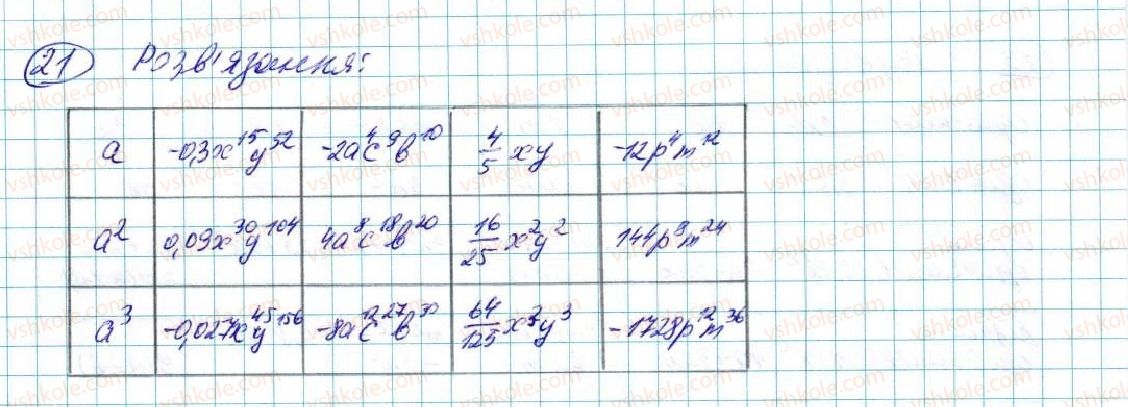 21 Розв'язання:
a | -0,3x¹⁵y⁵² | -2a⁴c⁹b¹⁰ | 4/5 xy | -12p⁴m¹²
a² | 0,09x³⁰y¹⁰⁴ | 4a⁸c¹⁸b²⁰ | 16/25 x²y² | 144p⁹m²⁴
a³ | -0,027x⁴⁵y¹⁵⁶ | -8a¹²c²⁷b³⁰ | 64/125 x³y³ | -1728p¹²m³⁶
vshkole.com